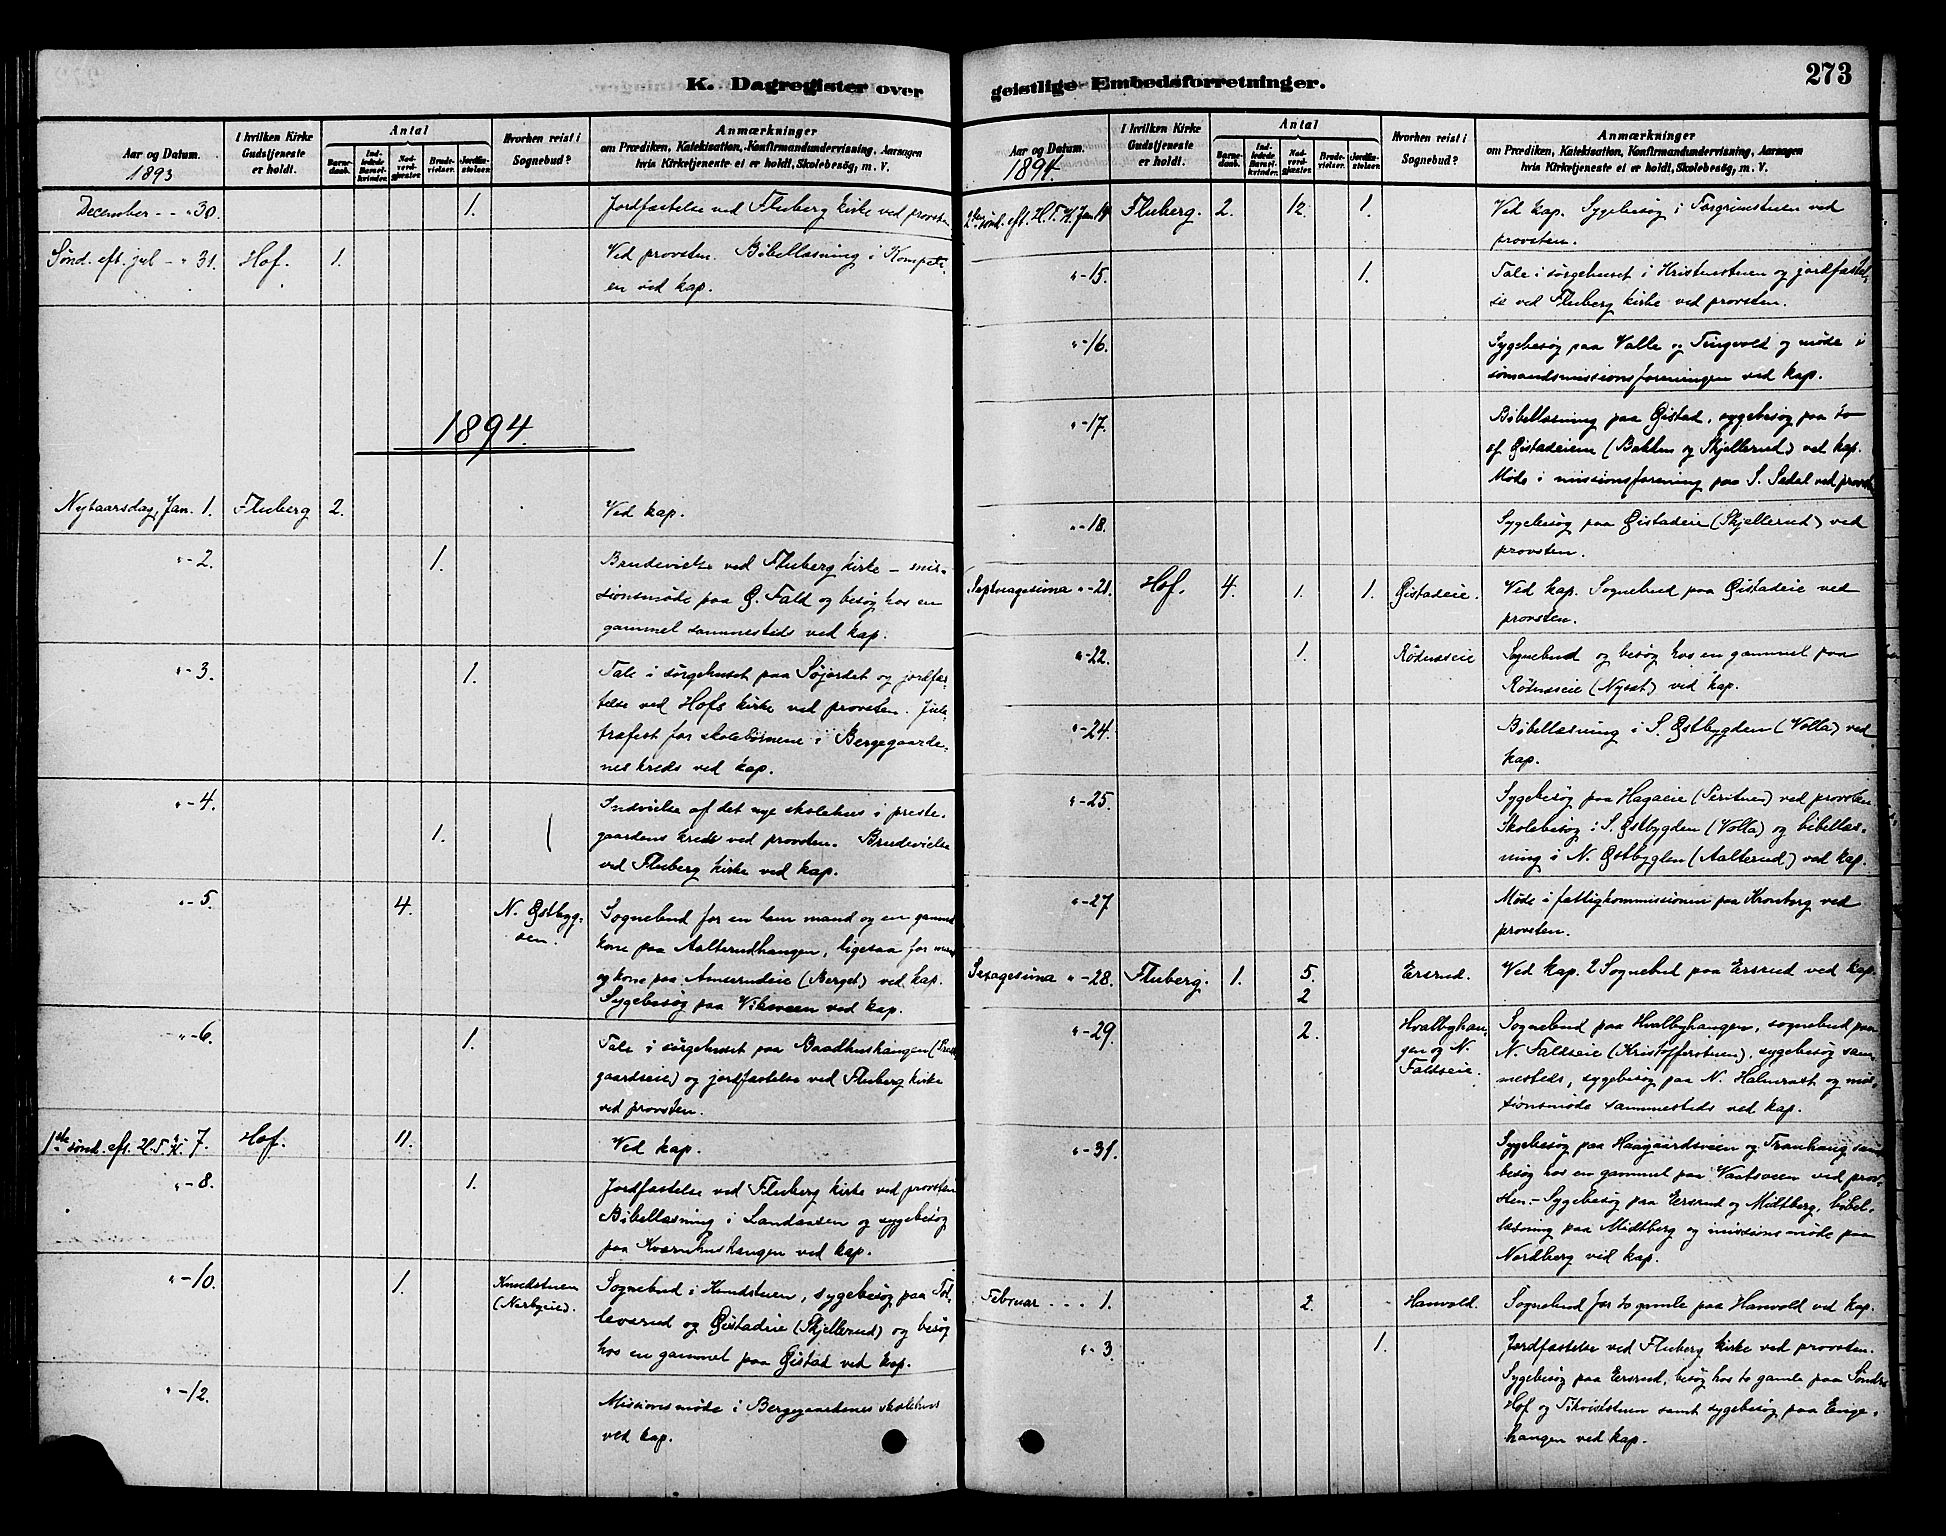 K. Dagregister over
geistlige Embedsforretninger.
273
Aar og Datum.
1893
I hvilken Kirke
Gudstjeneste
er holdt.
Antal
Barne-
daab.
Ind-
ledede
Barsel-
kvinder.
Nad-
verd-
gjæster.
Brude-
vielser.
Jordfæ-
stelser.
Hvorhen reist i
Sognebud?
Anmærkninger
om Prædiken, Katekisation, Konfirmandundervisning, Aarsagen
hvis Kirketjeneste ei er holdt, Skolebesøg, m. V.
December - - " 30. 1. Jordfæstelse ved Fluberg kirke ved provsten
Sønd. eft. jul - " 31. Hof. 1. Ved provsten. Bibellæsning i Kompete-
en ved kap.
1894.
Nytaarsdag, Jan. 1. Fluberg 2. Ved kap.
" - 2. 1. Brudevielse ved Fluberg kirke - mis-
sionsmøde paa Ø. Fald og besøg hos en
gammel sammesteds ved kap.
" - 3. 1. Tale i sørgehuset paa Søjordet og jordfæs-
telse ved Hofs kirke ved provsten. Jule-
træfest for skolebørnene i Bergegaarde-
nes kreds ved kap.
" - 4. Indvielse af det nye skolehus i preste-
1. gaardens kreds ved provsten. Brudevielse
ved Fluberg kirke ved kap.
" - 5. 4. N. Østbyg- Sognebud for en lam mand og en gammel
den. kone paa Aalterudhangen, ligesaa for mand
og kone paa Amerudeie (Berget) ved kap.
Sygebesøg paa Viksveen ved kap.
" - 6. 1. Tale i sørgehuset paa Baadhushangen (Prest-
gaardseie) og jordfæstelse ved Fluberg kirke
ved provsten.
1ste sønd. eft. H. T. K. " 7. Hof. 11. Ved kap.
" - 8. 1. Jordfæstelse ved Fluberg kirke ved provsten
Bibellæsning i Landaasen og sygebesøg
paa Kværnhushangen ved kap.
" - 10. 1. Knudstuen Sognebud i Knudstuen, sygebesøg paa Tol-
(Nerbyeie). leverud og Øistadeie (Skjellerud) og besøg
hos en gammel paa Øistad ved kap.
" - 12. Missionsmøde i Bergegaardenes skolehus
ved kap.
Aar og Datum.
1894.
I hvilken Kirke
Gudstjeneste
er holdt.
Antal
Barne-
daab.
Ind-
ledede
Barsel-
kvinder.
Nad-
verd-
gjæster.
Brude-
vielser.
Jordfæ-
stelser.
Hvorhen reist i
Sognebud?
Anmærkninger
om Prædiken, Katekisation, Konfirmandundervisning, Aarsagen
hvis Kirketjeneste ei er holdt, Skolebesøg, m. V.
2den sønd. eft. H. T. K. Jan. 14 Fluberg. 2. 12. 1. Ved kap. Sygebesøg i Torgrimstuen ved
provsten.
" - 15. 1. Tale i sørgehuset i Kristinestuen og jordfæstel-
se ved Fluberg kirke ved provsten.
" - 16. Sygebesøg paa Valle og Tingvold og møde i
sømandsmissionsforeningen ved kap.
" - 17. Bibellæsning paa Øistad, sygebesøg paa to
af Øistadeiene (Bakken og Skjellerud) ved kap.
Møde i missionsforening paa S. Sedal ved provsten
" - 18. Sygebesøg paa Øistadeie (Skjellerud) ved
provsten.
Septuagesima " - 21. Hof. 4. 1. 1. Øistadeie. Ved kap. Sognebud paa Øistadeie ved
provsten.
" - 22. 1. Rødnæseie Sognebud og besøg hos en gammel paa
Rødnæseie (Nysæt) ved kap.
" - 24. Bibellæsning i S. Østbygden (Volla) ved
kap.
" - 25. Sygebesøg paa Hagaeie (Siristuen) ved provsten
Skolebesøg i S. Østbygden (Volla) og bibellæs-
ning i N. Østbygden (Aalterud) ved kap.
" - 27 Møde i fattigkommissionen paa Kronborg ved
provsten.
Sexagesima " - 28. Fluberg. 1. 5. Ersrud. Ved kap. 2 Sognebud paa Ersrud ved kap.
2
" - 29. 2. Hvalbyhan- Sognebud paa Hvalbyhangen, sognebud paa
gen og N. N. Faldseie (Kristofferstuen), sygebesøg sam-
Faldseie. mesteds, sygebesøg paa N. Halmrast og mis-
sionsmøde sammesteds ved kap.
" - 31. Sygebesøg paa Haagaardsveen og Tranhaug samt
besøg hos en gammel paa Vaatsveen ved prov-
sten. - Sygebesøg paa Ersrud og Midtberg, bibel-
læsning paa Midtberg og missionsmøde paa
Nordberg ved kap.
Februar - - - 1. 2. Hanvold. Sognebud for to gamle paa Hanvold ved kap.
" - 3. 1. Jordfæstelse ved Fluberg kirke ved provsten.
Sygebesøg paa Ersrud, besøg hos to gamle paa Søndre
Hof og samt sygebesøg paa Enge-
hangen ved kap.